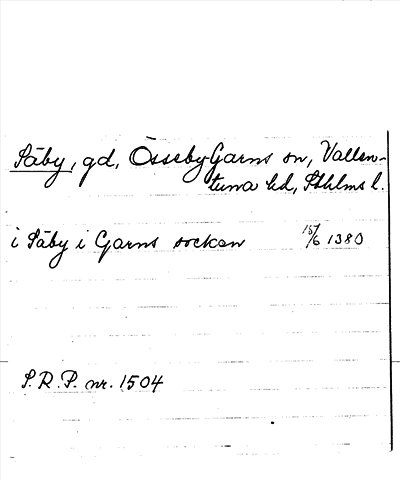 Säby, gd, Össeby Garns sn, Vallen-
tuna hd, Sthlms l.
i Säby i Garns sockan 15/6 1380
S.R.P. nr. 1504